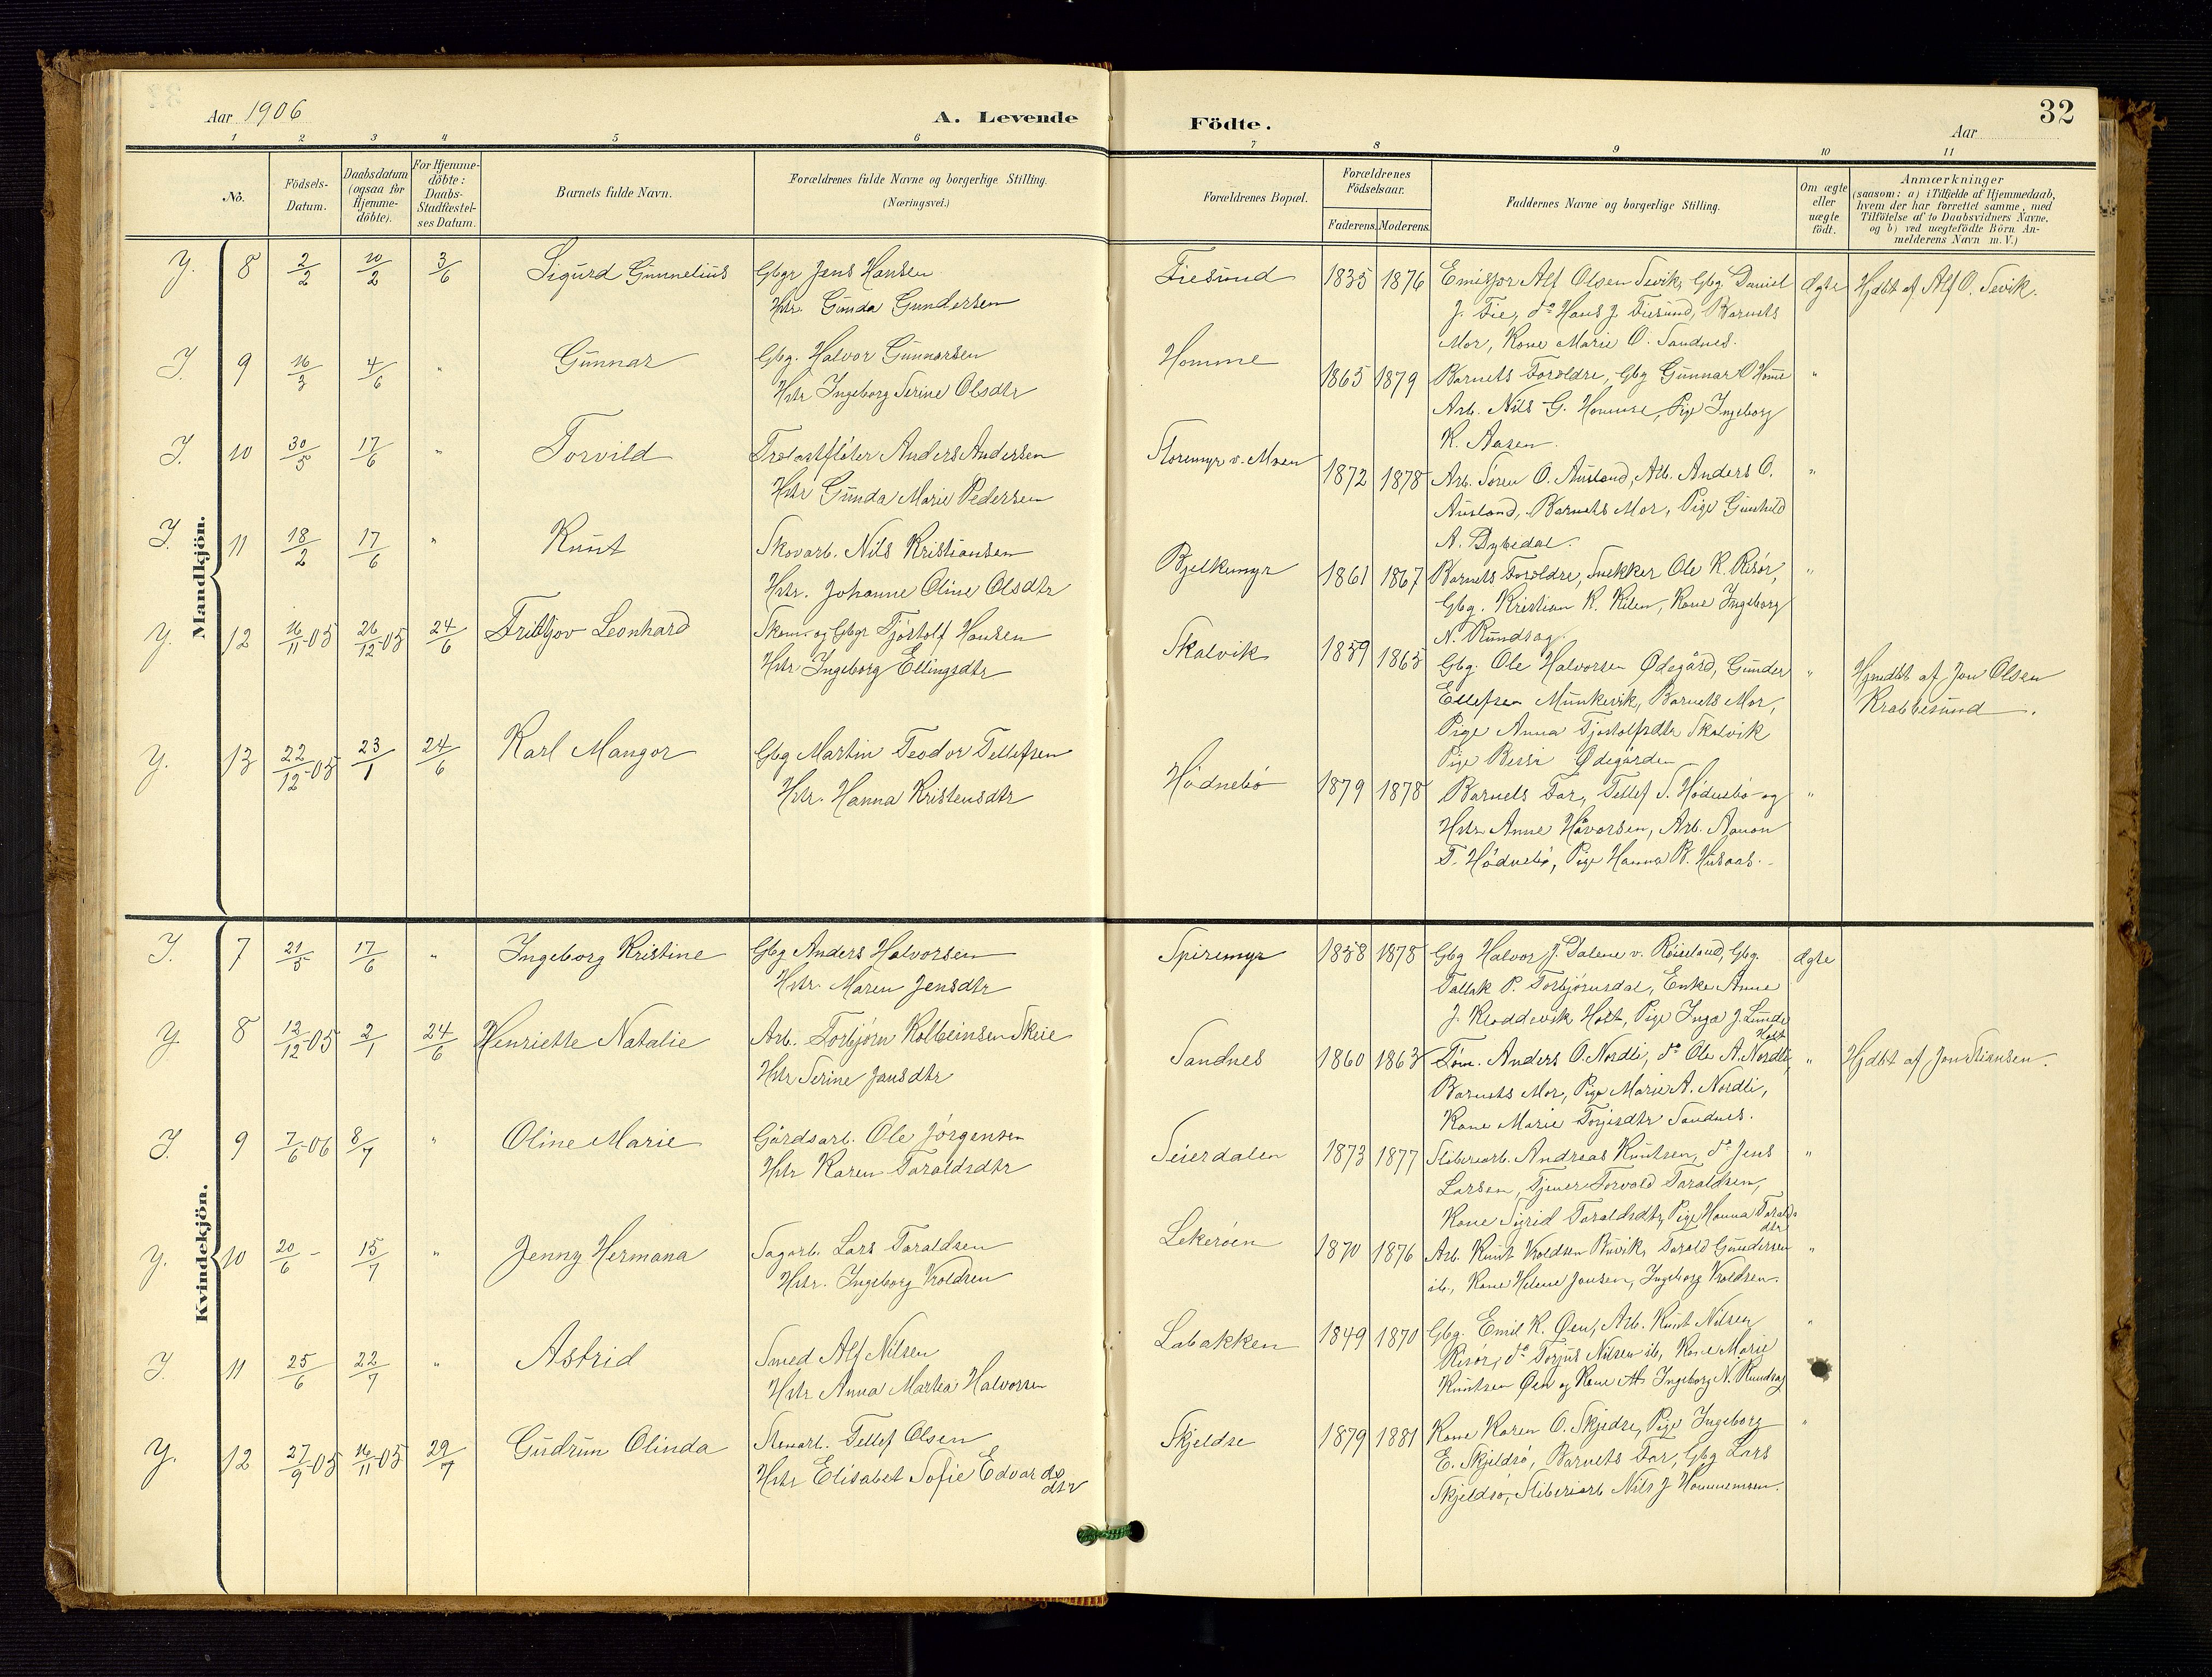 Aar 1906
A. Levende
Födte.
Aar
32
1 2 3 4 5 6 7 8 9 10 11
No.
Födsels-
Datum.
Daabsdatum
(ogsaa for
Hjemme-
döbte).
For Hjemme-
döbte:
Daabs-
Stadfæstel-
ses Datum.
Barnets fulde Navn.
Forældrenes fulde Navne og borgerlige Stilling.
(Næringsvei.)
Forældrenes Bopæl.
Forældrenes
Födselsaar.
Faderens. Moderens.
Faddernes Navne og borgerlige Stilling.
Om ægte
eller
uægte
födt.
Anmærkninger
(saasom: a) i Tilfælde af Hjemmedaab,
hvem der har forrettet samme, med
Tilföielse af to Daabsvidners Navne,
og b) ved uægtefödte Börn An-
melderens Navn m. V.)
Mandkjön.
Y. 8 2/2 10/2 3/6 Sigurd Gunnelius Gbgr Jens Hansen
Hstr. Gunda Gundersen
Fiesund 1835 1876 Emissær Alf Olsen Sevik, Gbg. Daniel
J. Fie, do Hans J. Fiesund, Barnets
Mor, Kone Marie O. Sandnes.
Ægte Hjdbt af Alf O. Sevik.
I. 9 16/3 4/6 " Gunnar Gbg. Halvor Gunnarsen
Hstr Ingeborg Serine Olsdtr
Homme 1865 1879 Barnets Foroldre, Gbg Gunnar O Home
Arb. Nils G. Homme, Pige Ingeborg
K. Aasen.
"
I. 10 30/5 17/6 " Torvild Trælastfløter Anders Andersen
Hstr Gunda Marie Pedersen
Storemyr v. Moen 1872 1878 Arb. Søren O. Ausland, Arb. Anders O.
Ausland, Barnets Mor, Pige Gunhild
A. Dybedal.
"
I. 11 18/2 17/6 " Knut Skovarb. Nils Kristiansen
Hstr. Johanne Oline Olsdtr
Bjelkemyr 1861 1867 Barnets Foroldre, Snekker Ole K. Risør,
Gbg. Kristian K. Kilen, Kone Ingeborg
N. Rundsag.
"
Y. 12 16/11-05 26/12-05 24/6 Fridtjov Leonhard Skom. og Gbgr Tjøstolf Hansen
Hstr Ingeborg Ellingsdtr
Skalvik 1859 1865 Gbg. Ole Halvorsen Ødegård, Gunder
Ellefsen Munkevik, Barnets Mor,
Pige Anna Tjostolfsdtr Skalvik
Pige Bessi Ødegården
" Hjmdbt af Jon Olsen
Krabbesund.
Y. 13 22/12-05 23/1 24/6 Karl Mangor Gbg Martin Teodor Tellefsen
Hstr. Hanna Kristensdtr
Hødnebø 1879 1878 Barnets Far, Tellef S. Hødnebø og
Hstr Anne Håvorsen, Arb. Aanon
T. Hødnebø, Pige Hanna B. Husaas.
"
Kvindekjön.
I. 7 21/5 17/6 " Ingeborg Kristine Gbg Anders Halvorsen
Hstr. Maren Jensdtr
Spiremyr 1858 1878 Gbg Halvor J. Dalene v. Røiseland, Gbg.
Tallak P. Torbjørnsdal, Enke Anne
J. Kloddevik Holt, Pige Inga J. Lunde
Holt
Ægte
Y. 8 12/12-05 2/1 24/6 Henriette Natalie Arb. Torbjørn Kolbeinsen Skeie
Hstr Serine Jansdtr
Sandnes 1860 1863 Tøm. Anders O. Nordli, do Ole A. Nordli,
Barnets Mor, Pige Marie A. Nordli,
Kone Marie Torjesdtr Sandnes.
" Hjdbt af Jon Stiansen.
I. 9 7/6-06 8/7 " Oline Marie Gårdsarb. Ole Jørgensen
Hstr Karen Taraldsdtr
Seierdalen 1873 1877 Sliberiarb. Andreas Knutsen, do Jens
Larsen, Tjener Torvald Taraldsen,
Kone Sigrid Taraldsdtr, Pige Hanna Taralds-
dtr
"
Y. 10 20/6 - 15/7 " Jenny Hermana Sagarb. Lars Taraldsen
Hstr. Ingeborg Kroldsen
Lekerøen 1870 1876 Arb. Knut Kroldsen Buvik, Tarald Gundersen
ib., Kone Helene Jansen, Ingeborg Kroldsen.
"
I. 11 25/6 22/7 " Astrid Smed Alf Nilsen
Hstr Anna Martea Halvorsen
Labakken 1849 1870 Gbg. Emil K. Øen, Arb. Knut Nilsen
Risør, do Torjus Nilsen ib, Kone Marie
Knutsen Øen og Kone Ingeborg N. Rundsag
"
Y. 12 27/9-05 16/11-05 29/7 Gudrun Olinda Stenarb. Tellef Olsen
Hstr Elisabet Sofie Edvards
dtr
Skjeldsø 1879 1881 Kone Karen O. Skjedsø, Pige Ingeborg
E. Skjeldsø, Barnets Far, Gbg Lars
Skjeldsø, Sliberiarb Nils J Hommemoen.
"